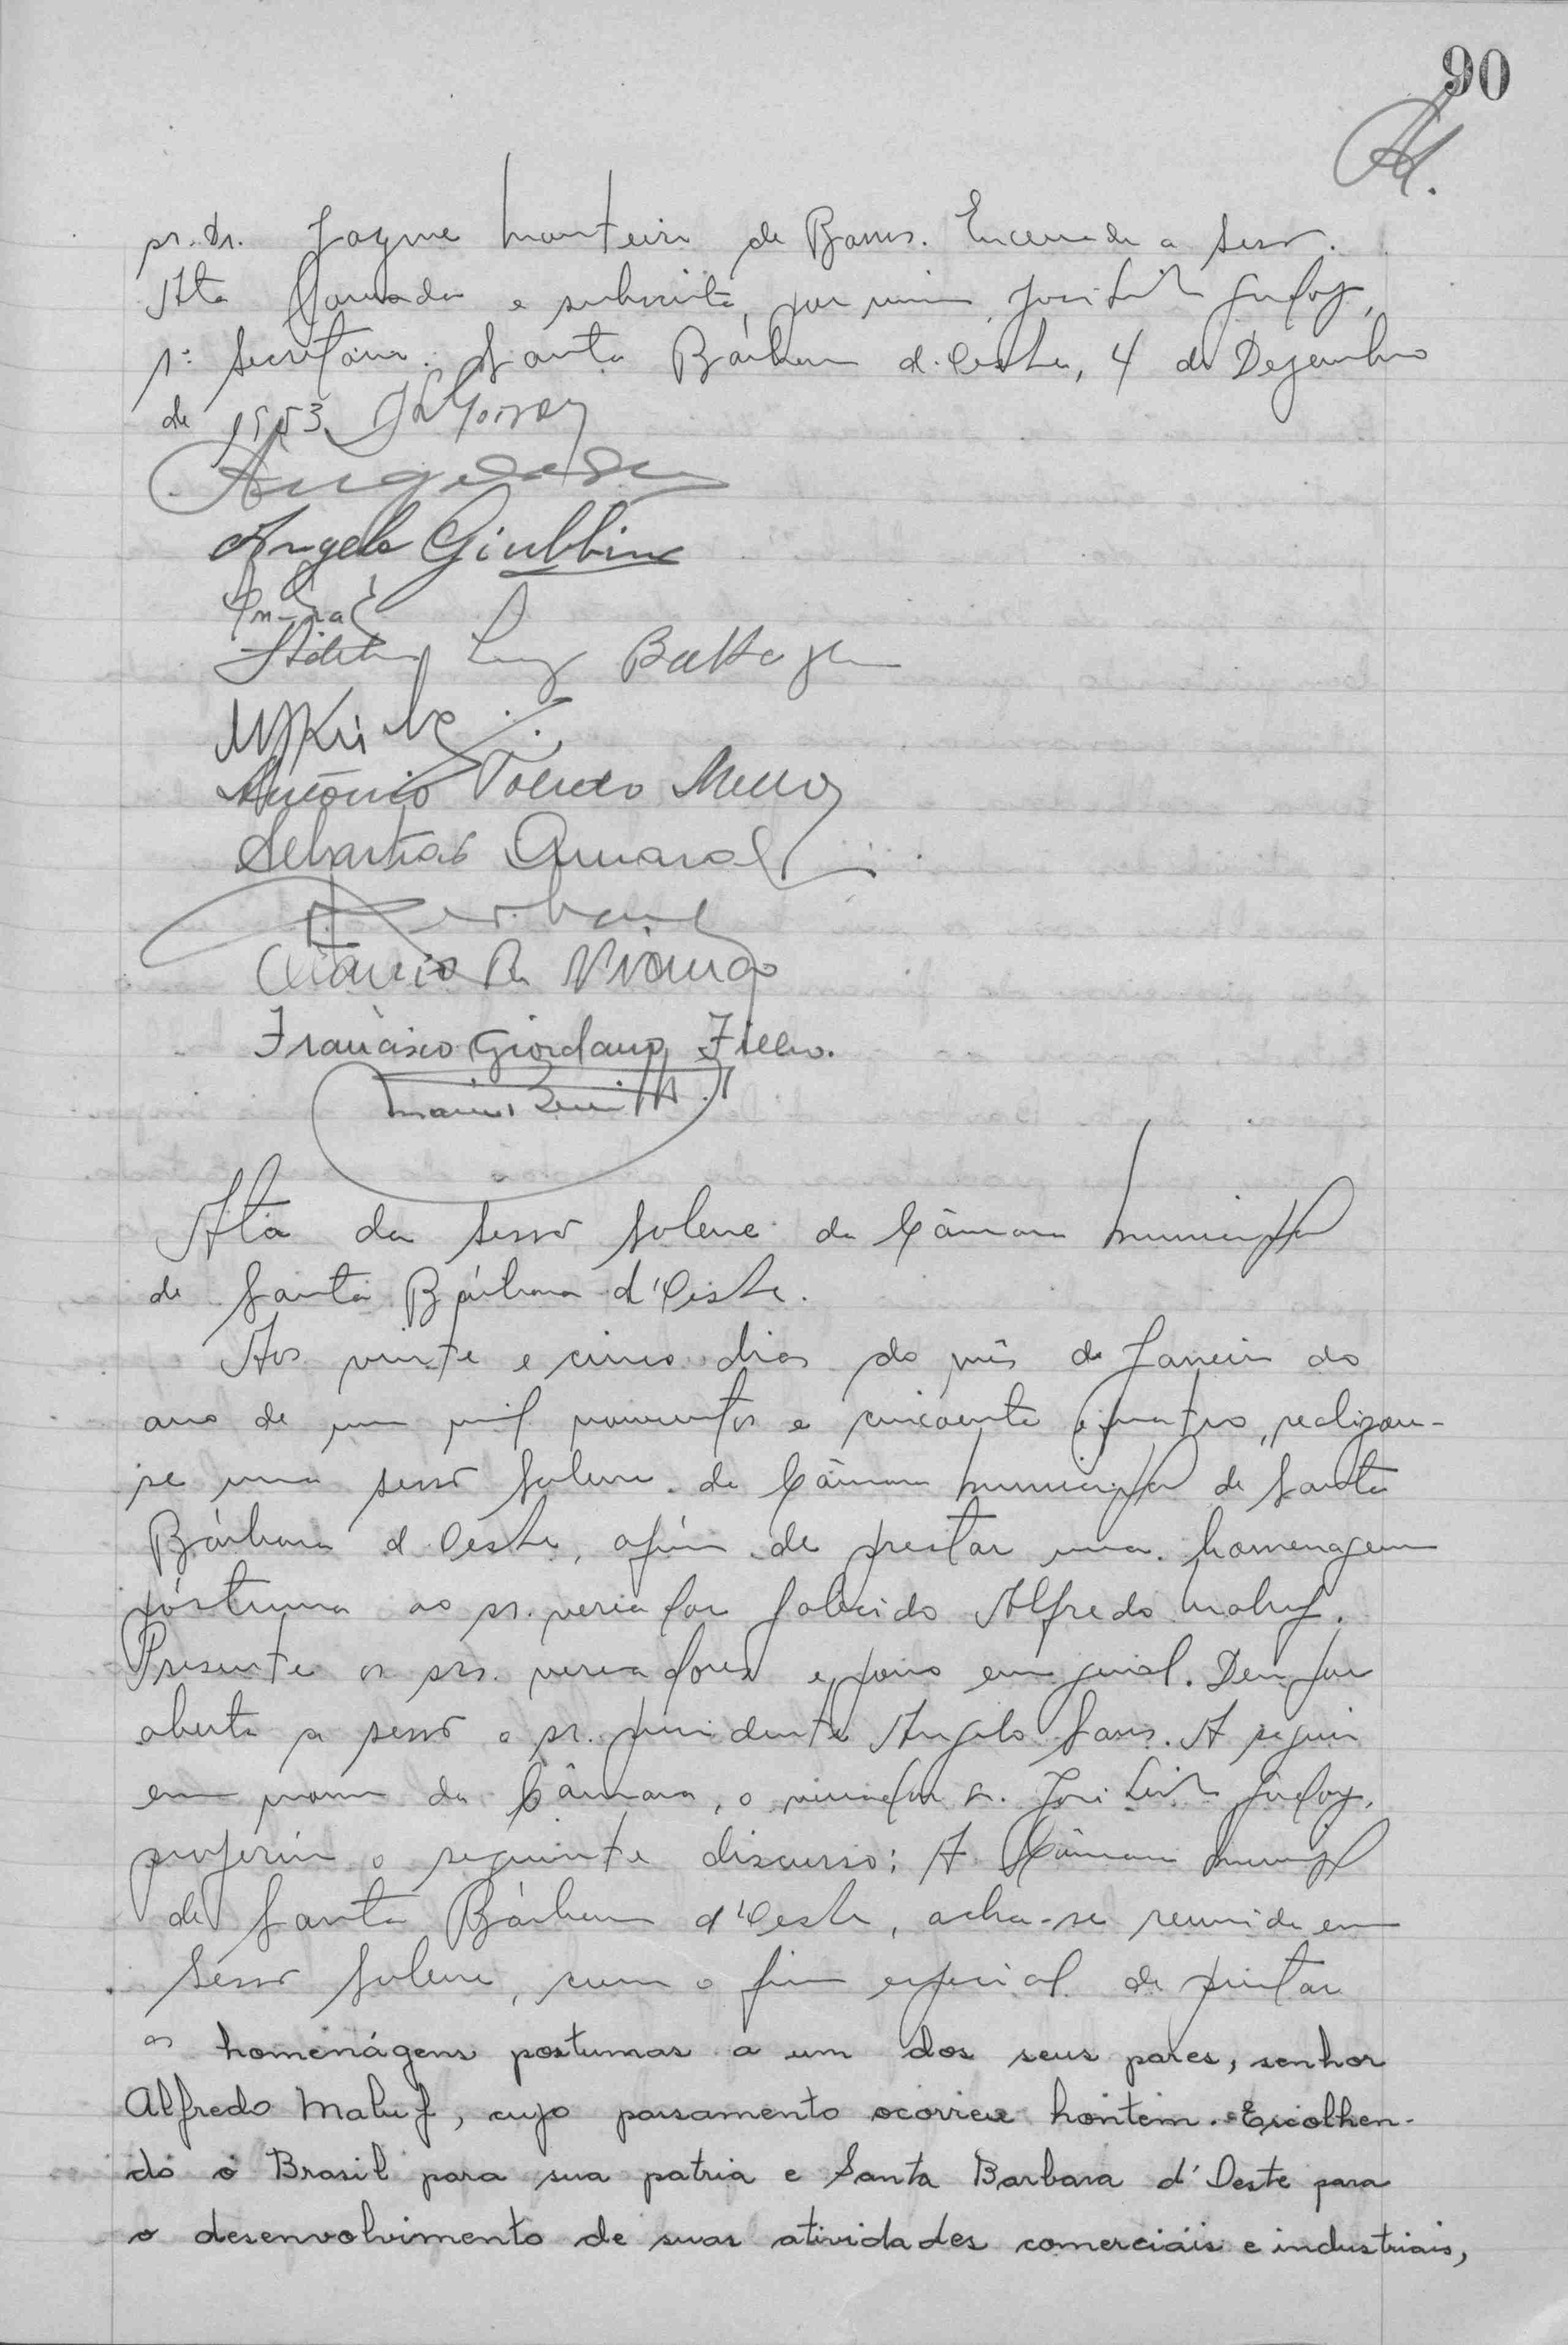 90
sr. dr. Jayme Monteiro de Barros. Encerrada a sessão.
Ata lavrada e subscrita, por mim, José Luiz Godoy,
1º Secretário. Santa Bárbara d'Oeste, 4 de Dezembro
de 1953
Angelo Giubbina
Luiz Battagin
Antônio Toledo Mello
Sebastião Amaral
Francisco Giordano Filho.
Ata da sessão solene da Câmara Municipal
de Santa Bárbara d'Oeste.
Aos vinte e cinco dias do mês de Janeiro do
ano de um mil novecentos e cincoenta e quatro, realizou-
se uma sessão solene da Câmara Municipal de Santa
Bárbara d'Oeste, afim de prestar uma homenagem
póstuma ao sr. vereador falecido Alfredo Maluf.
Presente os srs. vereadores e povo em geral. Deu por
aberta a sessão o sr. presidente Angelo Sans. A seguir
em nome da Câmara, o vereador sr. José Luiz Godoy,
proferiu o seguinte discurso: A Câmara Municipal
de Santa Bárbara d'Oeste, acha-se reunida em
sessão solene, com o fim especial de prestar
as homenágens postumas a um dos seus pares, senhor
Alfredo Maluf, cujo passamento ocorreu hontem. Escolhen-
do o Brasil para sua patria e Santa Barbara d'Oeste para
o desenvolvimento de suas atividades comerciáis e industriais,